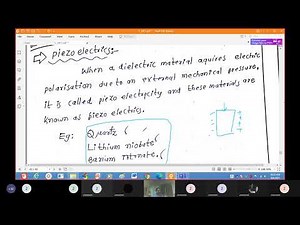 piezo electrics:-
When a dielectric material aquires electric
polarisation due to an external mechanical pressure,
it is called piezo electricity and these materials are
known as piezo electrics.
Eg:
Quartz
Lithium niobate
Barium titanate.